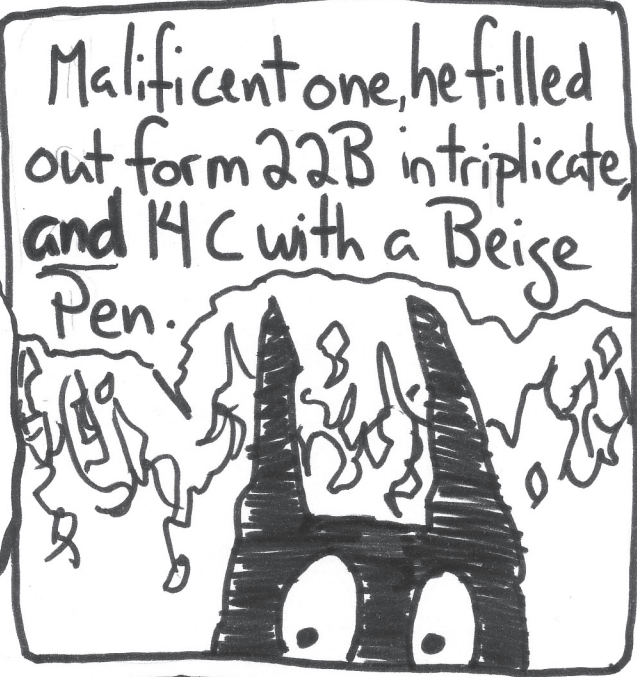 Malificent one, he filled
out form 22B in triplicate,
and 14 C with a Beige
Pen.